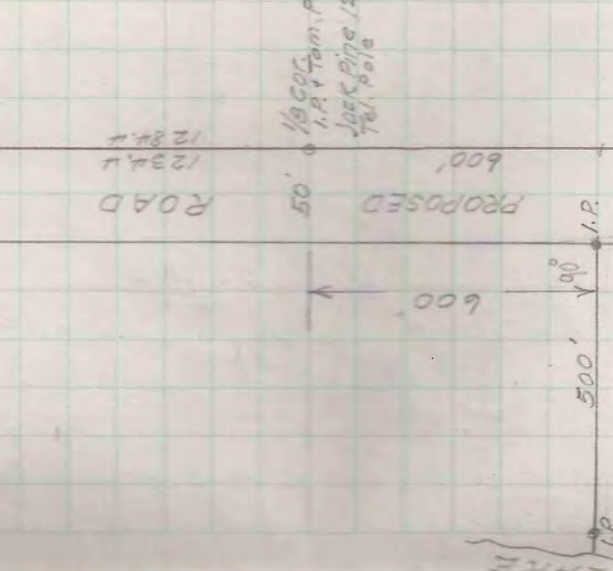 1/8 COR
I.P. & Tom. P
Jack Pine 12
Tel. Pole
600'
1234.4
1284.4
PROPOSED 50' ROAD
I.P.
90°
600'
500'
I.P.